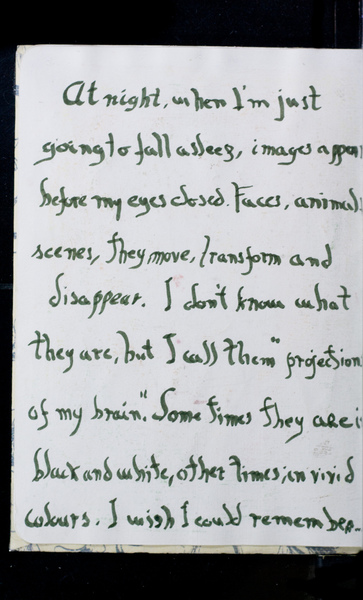 At night, when I'm just
going to fall asleep, images appear
before my eyes closed. Faces, animals
scenes, they move, transform and
disappear. I don't know what
they are, but I call them "projection
of my brain". Some times they are i
black and white, other times, in vivid
colours. I wish I could remember...